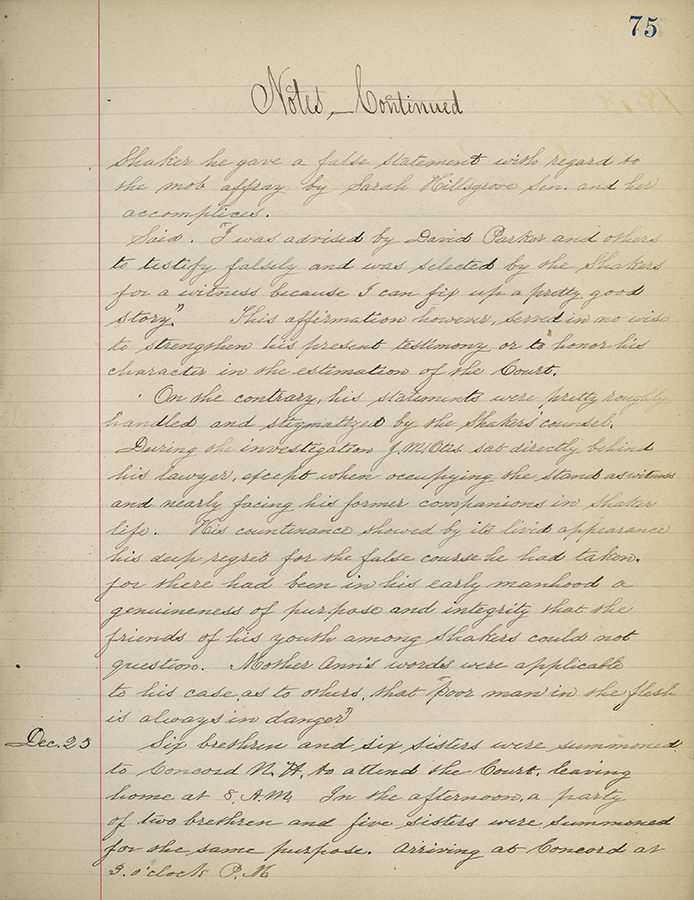 75
Notes, – Continued
Shaker he gave a false statement with regard to
the mob affray by Sarah Hillsgrove Sen. and her
accomplices.
Said. "I was advised by David Parker and others
to testify falsely and was selected by the Shakers
for a witness because I can fix up a pretty good
story." This affirmation however, served in no wise
to strengthen his present testimony or to honor his
character in the estimation of the Court.
On the contrary, his statements were pretty roughly
handled and stigmatized by the Shakers' counsel.
During the investigation J. M. Otis sat directly behind
his lawyer, except when occupying the stand as witness
and nearly facing his former companions in Shaker
life. His countenance showed by its livid appearance
his deep regret for the false course he had taken.
for there had been in his early manhood a
genuineness of purpose and integrity that the
friends of his youth among Shakers could not
question. Mother Ann's words were applicable
to his case, as to others, that "Poor man in the flesh
is always in danger"
Dec. 23 Six brethren and six sisters were summoned
to Concord N. H. to attend the Court, leaving
home at 8, A.M. In the afternoon, a party
of two brethren and five sisters were summoned
for the same purpose. Arriving at Concord at
3. o'clock P.M.